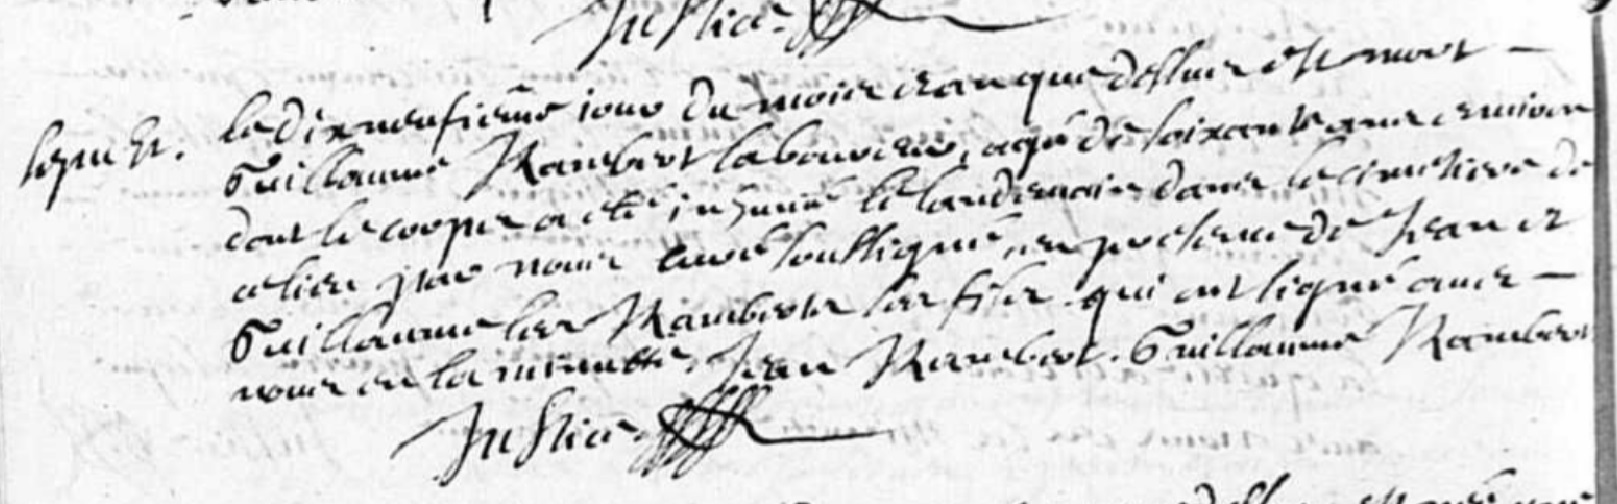 Justice
le dixneufieme jour du mois et an que dessus est mort —
sepult. Guillaume Rambert laboureur, agé de soixante ans environ
dont le corps a eté inhumé le landemain dans le cimetiere de
ce lieu par nous curé soussigné, en presence de Jean et
Guillaume les Ramberts ses fils qui ont signé avec —
nous en la minutte, Jean Rambert. Guillaume Rambert
Justice